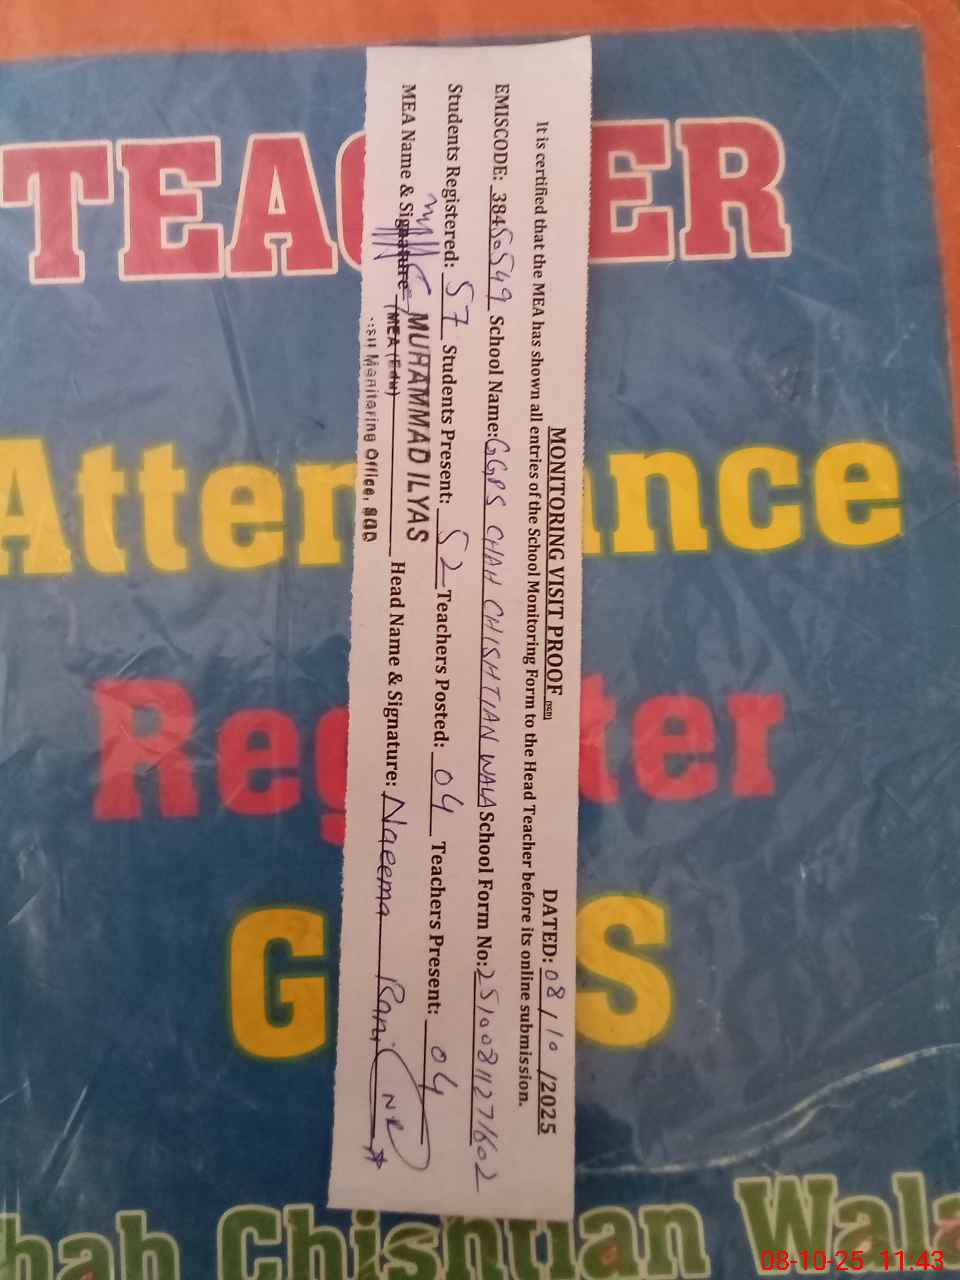 TEACHER
Attendance
Register
GGPS
Chah Chishtian Wala
MONITORING VISIT PROOF (SGD) DATED: 08/10/2025
It is certified that the MEA has shown all entries of the School Monitoring Form to the Head Teacher before its online submission.
EMISCODE: 38450549 School Name: GGPS CHAH CHISHTIAN WALA School Form No: 25100811271602
Students Registered: 57 Students Present: 52 Teachers Posted: 04 Teachers Present: 04
MEA Name & Signature MUHAMMAD ILYAS Head Name & Signature: Naeema Rani NR
MEA (Edu)
Monitoring Office, SGD
08-10-25 11:43